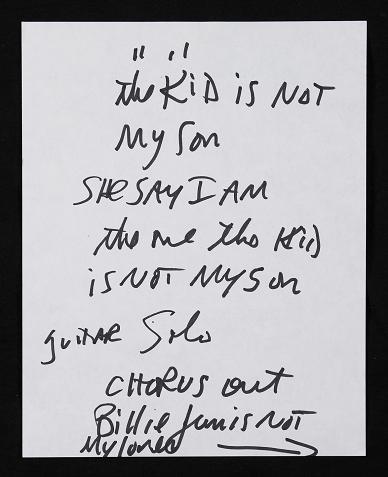 " "
the KiD is NOT
My Son
SHE SAY I AM
the one the Kid
is NOT My Son
guitAR Solo
CHORUS out
Billie Jean is NOT
My lover